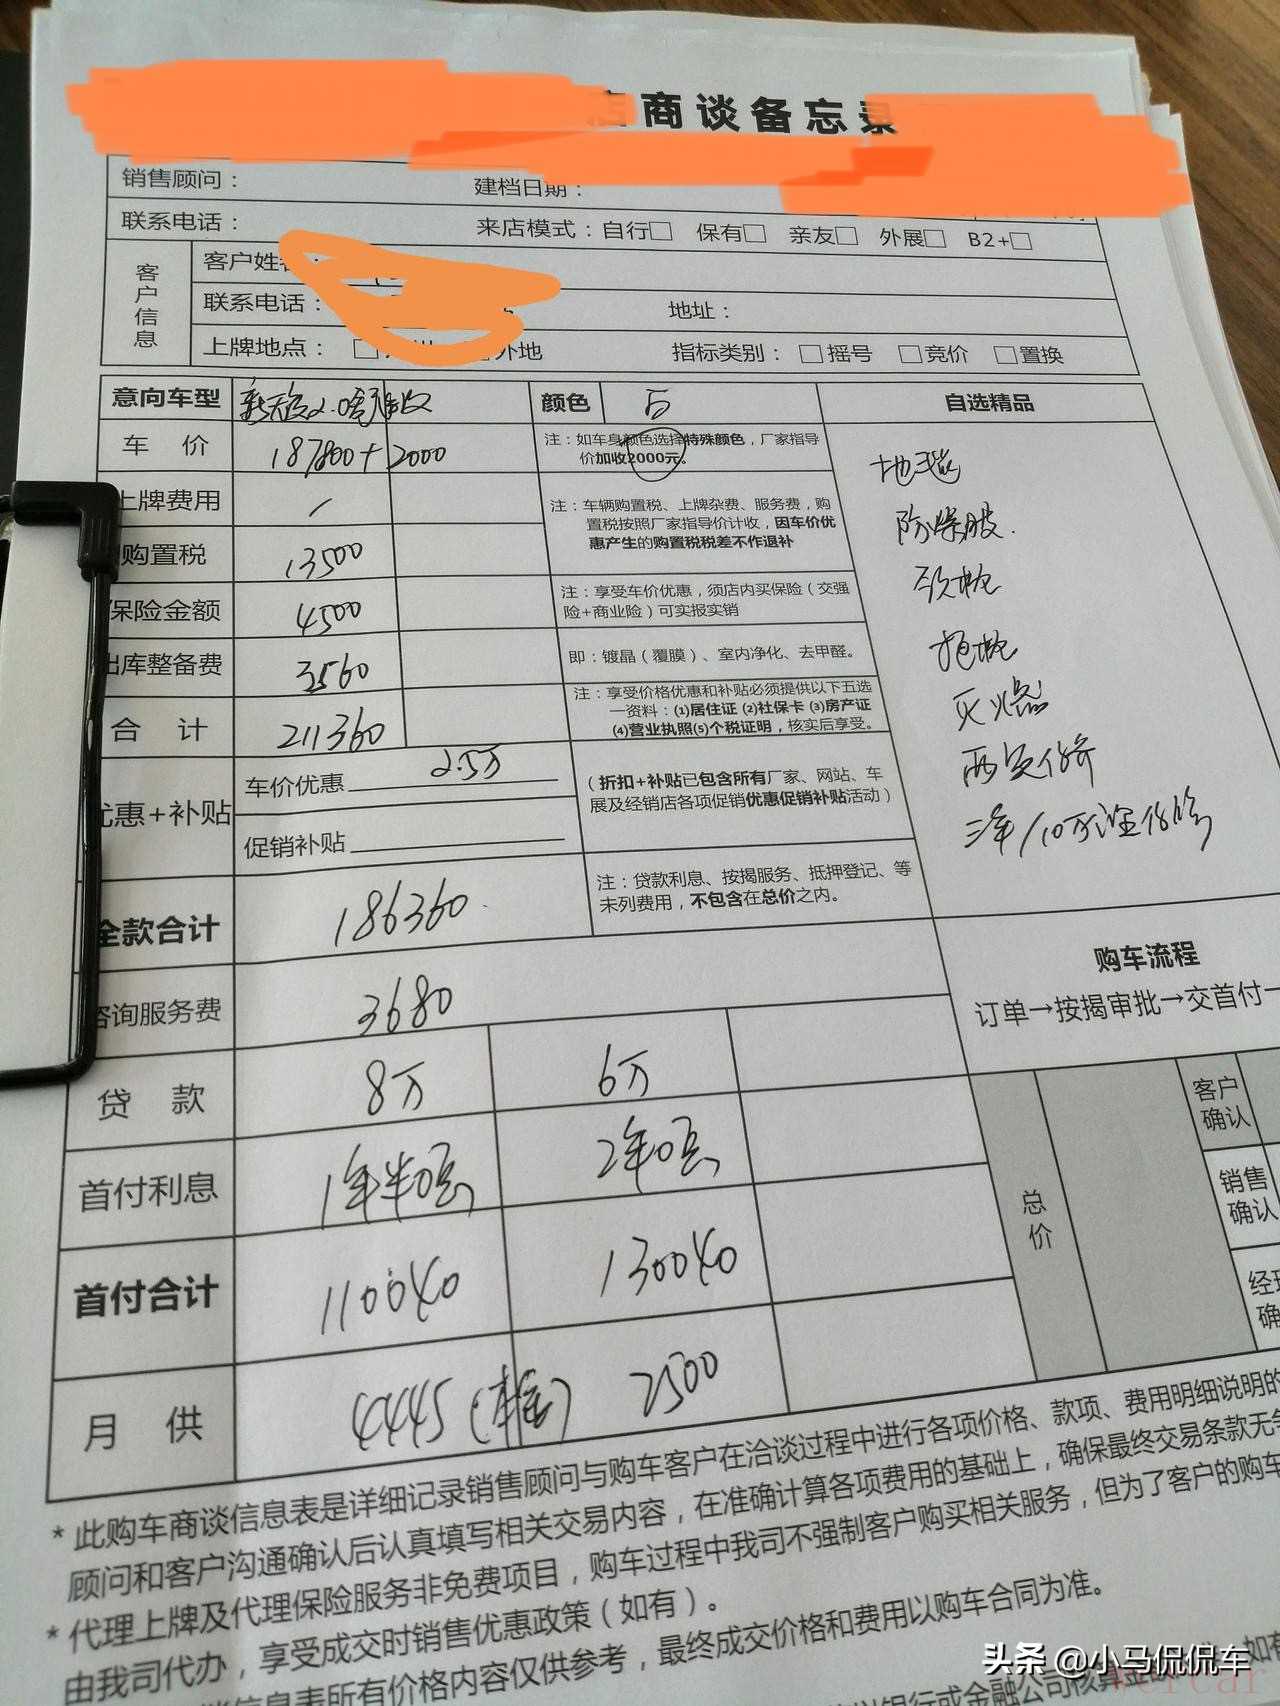 店商谈备忘录
销售顾问：
建档日期：
联系电话：
来店模式：自行□ 保有□ 亲友□ 外展□ B2+□
客户信息
客户姓名：
联系电话：
地址：
上牌地点：□
外地
指标类别：□摇号 □竞价 □置换
意向车型
颜色
白
自选精品
车 价
187800+2000
注：如车身颜色选择特殊颜色，厂家指导
价加收2000元。
上牌费用
/
注：车辆购置税、上牌杂费、服务费，购
置税按照厂家指导价计收，因车价优
惠产生的购置税税差不作退补
购置税
13500
保险金额
4500
注：享受车价优惠，须店内买保险（交强
险+商业险）可实报实销
出库整备费
3560
即：镀晶（覆膜）、室内净化、去甲醛。
合 计
211360
注：享受价格优惠和补贴必须提供以下五选
一资料：(1)居住证 (2)社保卡 (3)房产证
(4)营业执照(5)个税证明，核实后享受。
优惠+补贴
车价优惠 2.5万
促销补贴
（折扣+补贴已包含所有厂家、网站、车
展及经销店各项促销优惠促销补贴活动）
地毯
防爆膜
颈枕
抱枕
灭火器
两次保养
三年/10万
全款合计
186360
注：贷款利息、按揭服务、抵押登记、等
未列费用，不包含在总价之内。
咨询服务费
3680
购车流程
订单→按揭审批→交首付一
贷 款
8万
6万
首付利息
1年半0息
2年0息
首付合计
110040
130040
月 供
4445
2500
总价
客户
确认
销售
确认
经理
确
* 此购车商谈信息表是详细记录销售顾问与购车客户在洽谈过程中进行各项价格、款项、费用明细说明的
顾问和客户沟通确认后认真填写相关交易内容，在准确计算各项费用的基础上，确保最终交易条款无
* 代理上牌及代理保险服务非免费项目，购车过程中我司不强制客户购买相关服务，但为了客户的购车
由我司代办，享受成交时销售优惠政策（如有）。
信息表所有价格内容仅供参考，最终成交价格和费用以购车合同为准。
银行或金融公司核算金额
如有
头条 @小马侃侃车